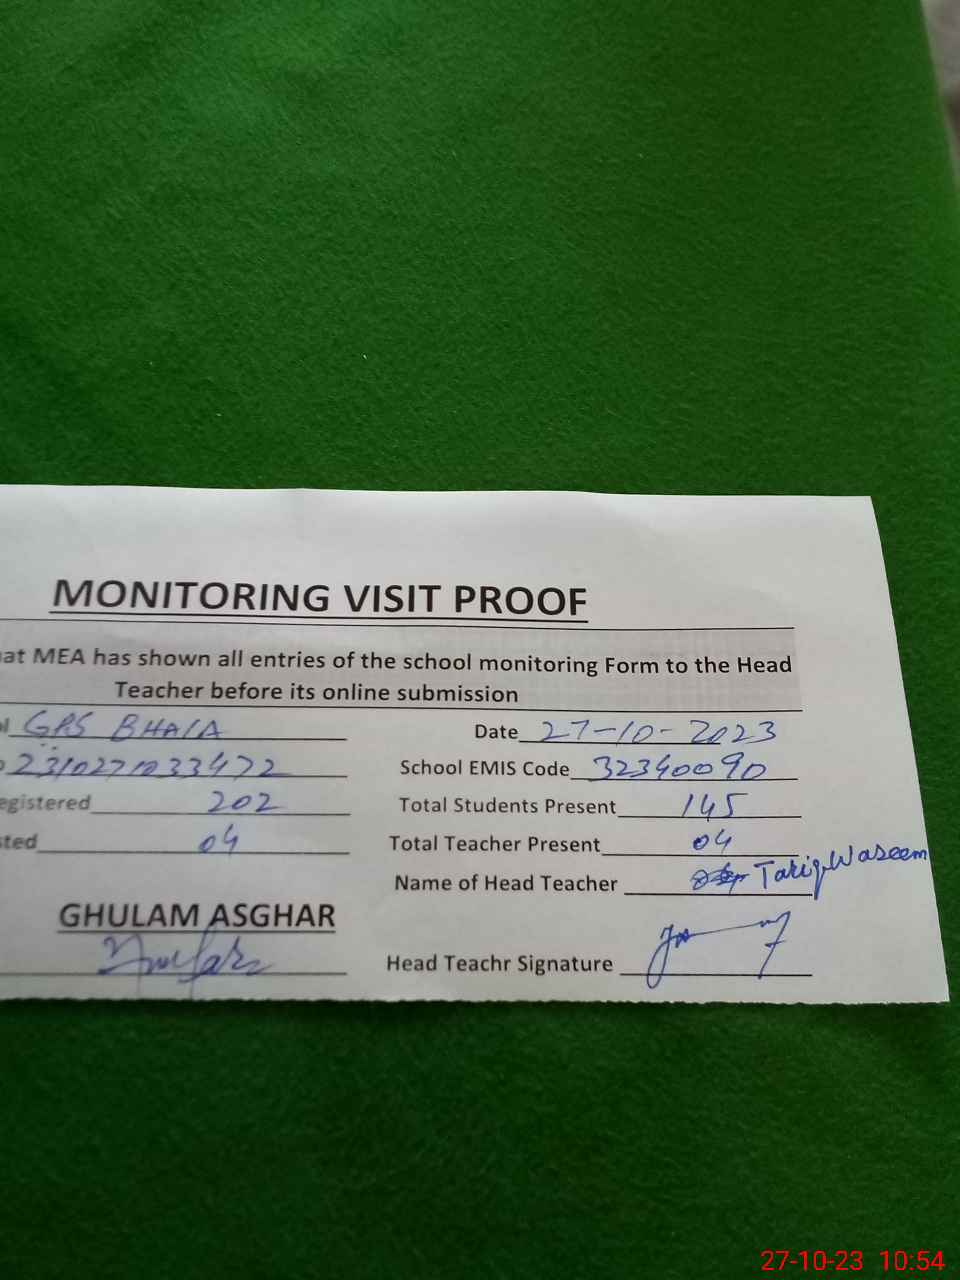 MONITORING VISIT PROOF
at MEA has shown all entries of the school monitoring Form to the Head
Teacher before its online submission
GPS BHAIA Date 27-10-2023
2310271033472 School EMIS Code 32340090
egistered 202 Total Students Present 145
ted 04 Total Teacher Present 04
Name of Head Teacher Tariq Waseem
GHULAM ASGHAR
Head Teachr Signature
27-10-23 10:54